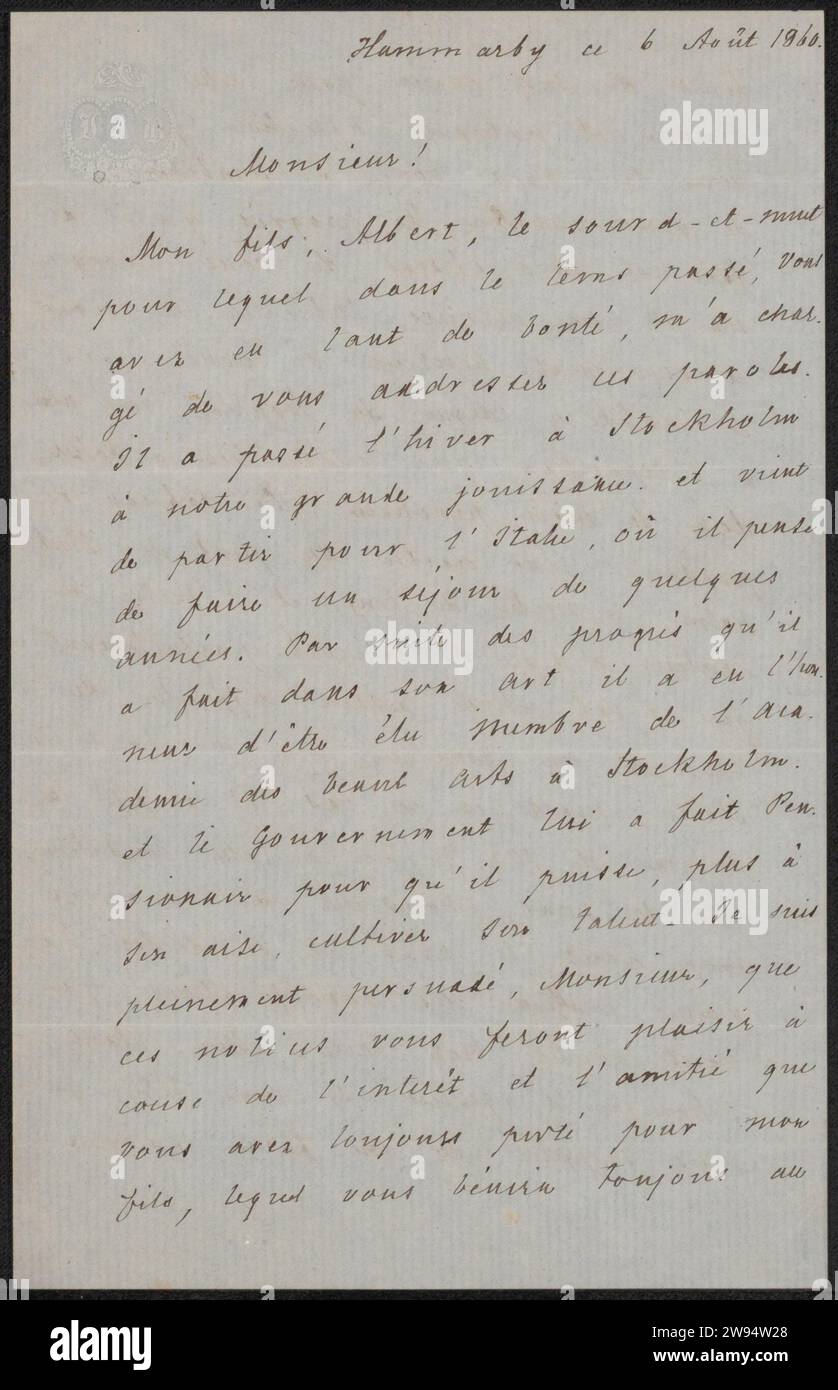 Hammarby ce 6 Août 1860.
Monsieur!
Mon fils, Albert, le sourd-et-muet
pour lequel dans le tems passé, vous
avez eu tant de bonté, m'a char-
gé de vous addresser ces paroles.
Il a passé l'hiver à Stockholm
à notre grande jouissance. et vient
de partir pour l'Italie, où il pense
de faire un séjour de quelques
années. Par suite des progrés qu'il
a fait dans son art il a eu l'hon-
neur d'être élu Membre de l'Aca-
demie des beaux arts à Stockholm.
et le Gouvernement lui a fait Pen-
sionair pour qu'il puisse, plus à
son aise, cultiver son talent. Je suis
pleinement persuadé, Monsieur, que
ces notices vous feront plaisir à
cause de l'interêt et l'amitié que
vous avez toujours porté pour mon
fils, lequel vous bénira toujours au
alamy
alamy
Image ID: 2W94W28
www.alamy.com